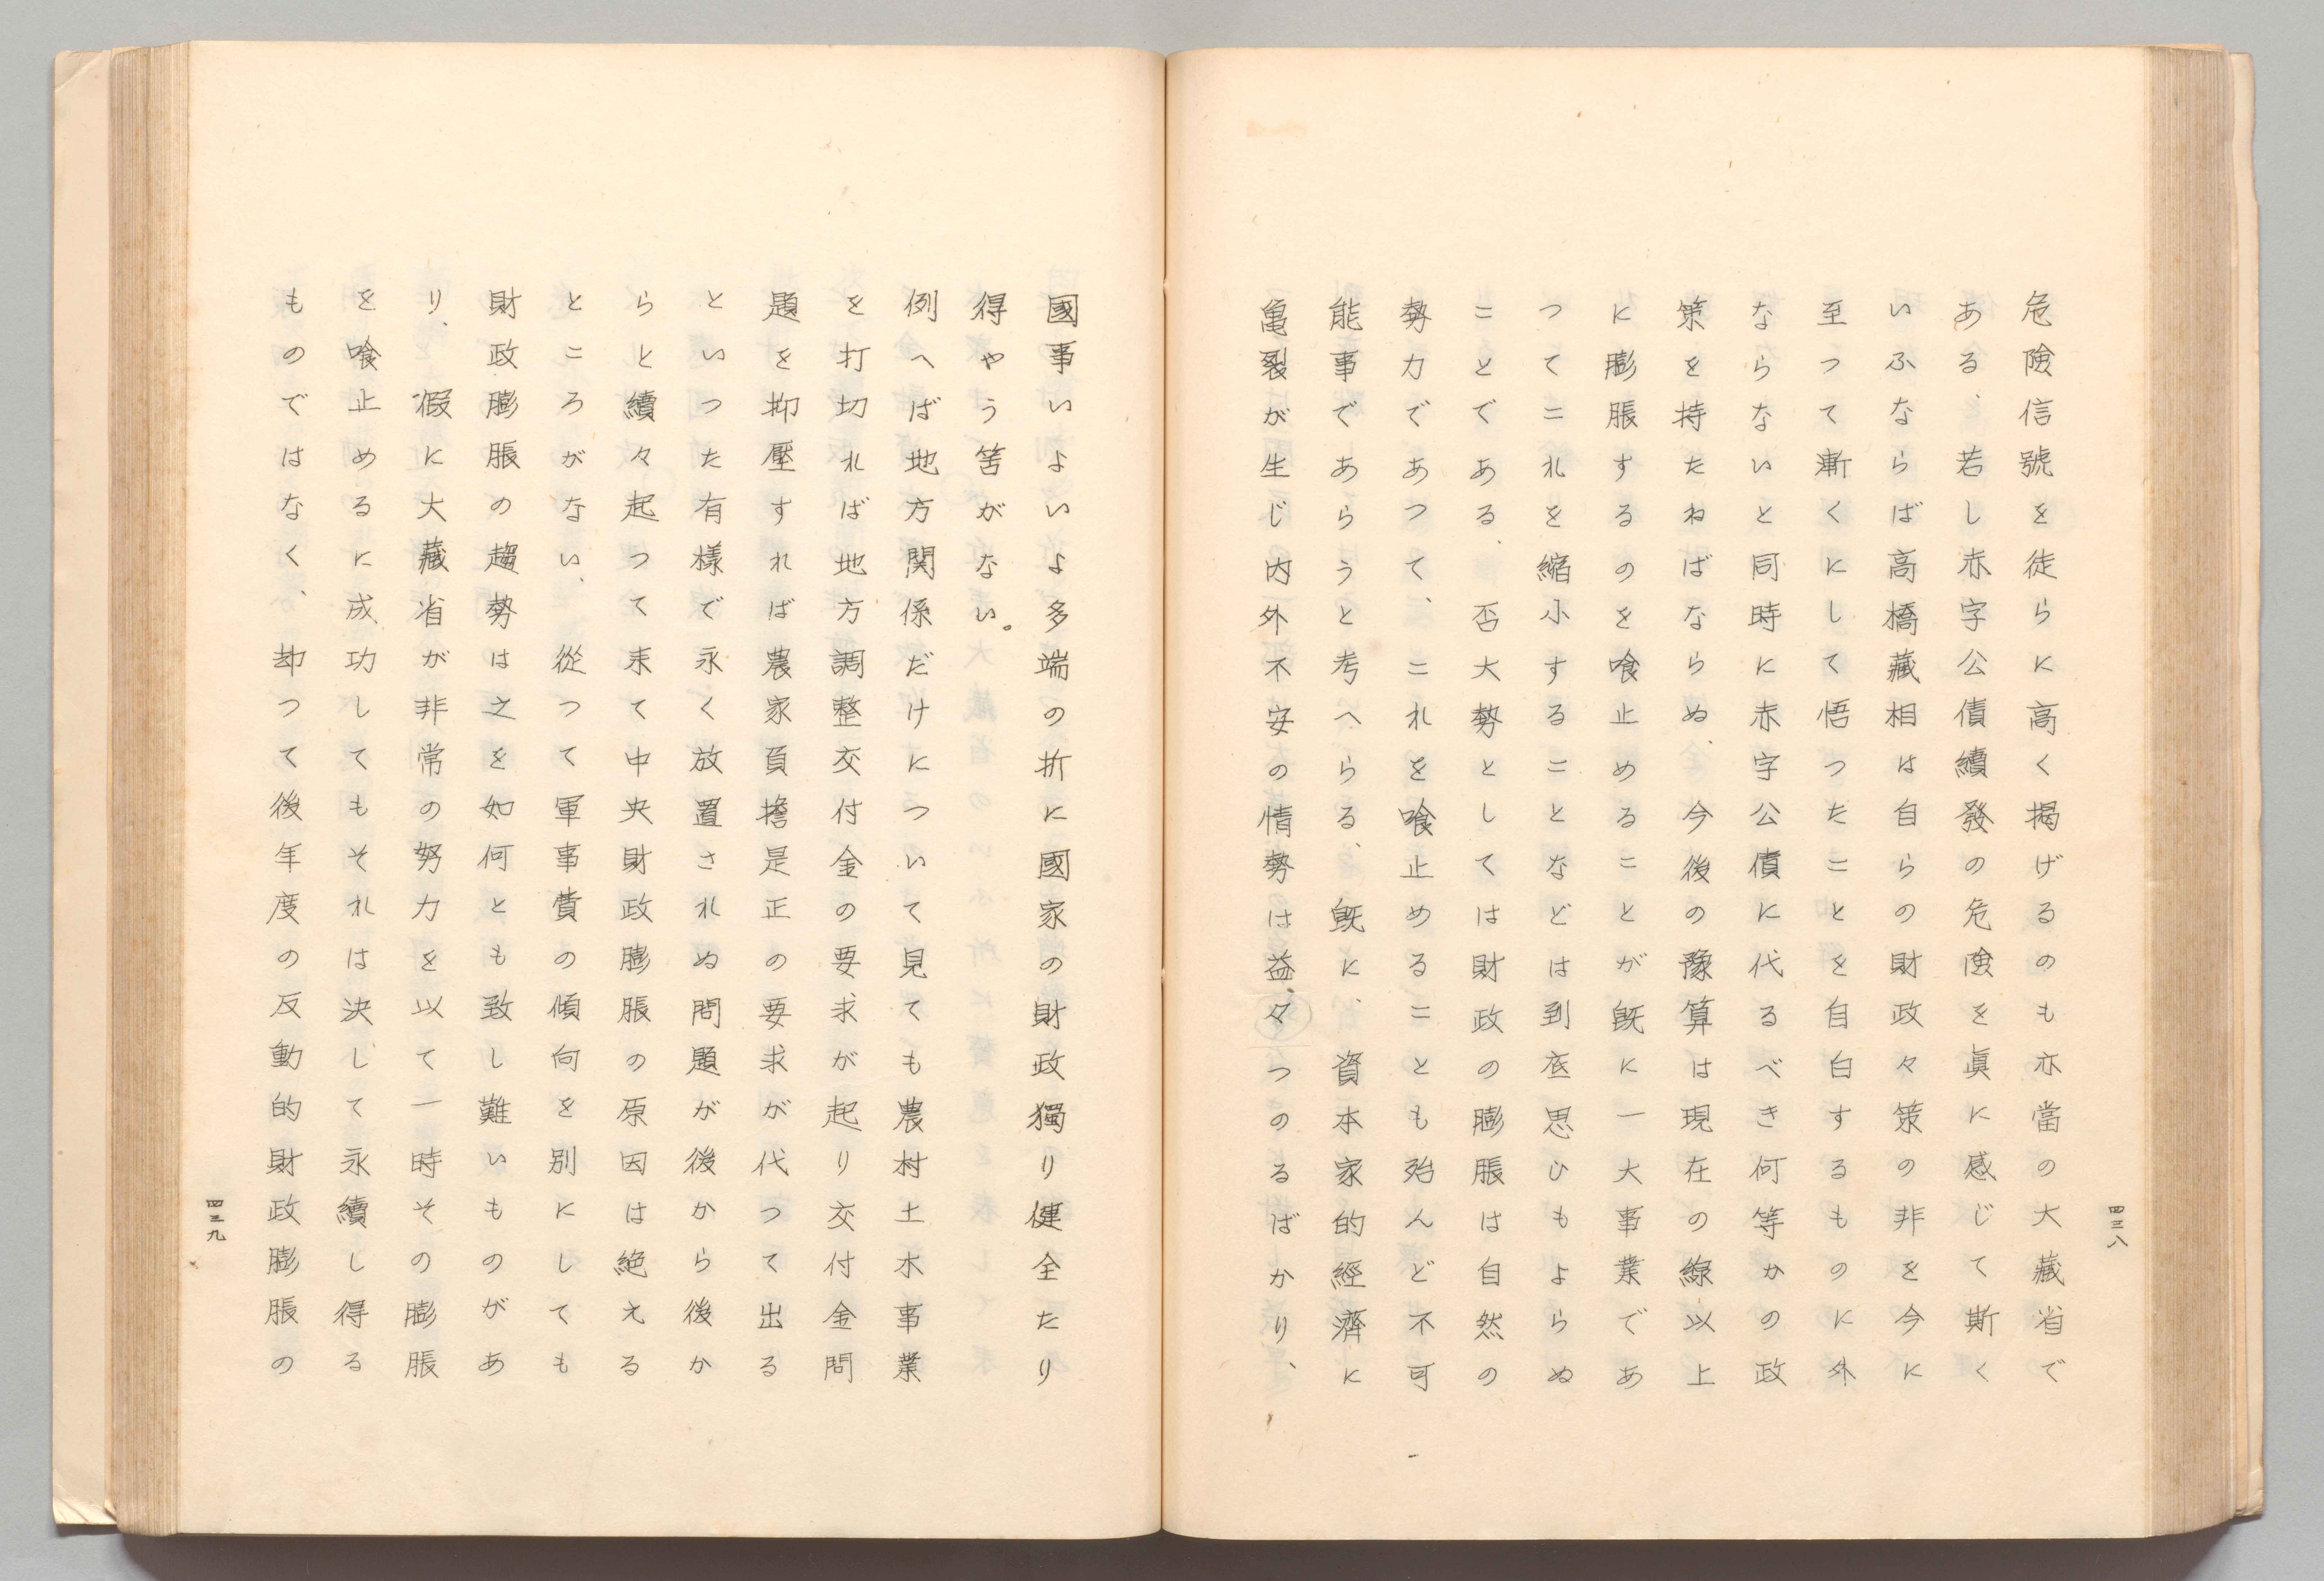 危險信號を徒らに高く揭げるのも亦當の大藏省で
ある、若し赤字公債續發の危険を眞に感じて斯く
いふならば高橋藏相は自らの財政々策の非を今に
至つて漸くにして悟つたことを自白するものに外
ならないと同時に赤字公債に代るべき何等かの政
策を持たねばならぬ、今後の豫算は現在の線以上
に膨脹するのを喰止めることが既に一大事業であ
つてこれを縮小することなどは到底思ひもよらぬ
ことである、否大勢としては財政の膨脹は自然の
勢力であつて、これを喰止めることも殆んど不可
能事であらうと考へらる、既に、資本家的經濟に
亀裂が生じ内外不安の情勢は益々つのるばかり、
四三八
國事いよいよ多端の折に國家の財政獨り健全たり
得やう筈がない。
例へば地方関係だけについて見ても農村土木事業
を打切れば地方調整交付金の要求が起り交付金問
題を抑壓すれば農家負擔是正の要求が代つて出る
といつた有樣で永く放置されぬ問題が後から後か
らと續々起つて来て中央財政膨脹の原因は絶える
ところがない、従つて軍事費の傾向を別にしても
財政膨脹の趨勢は之を如何とも致し難いものがあ
り、假に大藏省が非常の努力を以て一時その膨脹
を喰止めるに成功してもそれは決して永續し得る
ものではなく、却つて後年度の反動的財政膨脹の
四三九